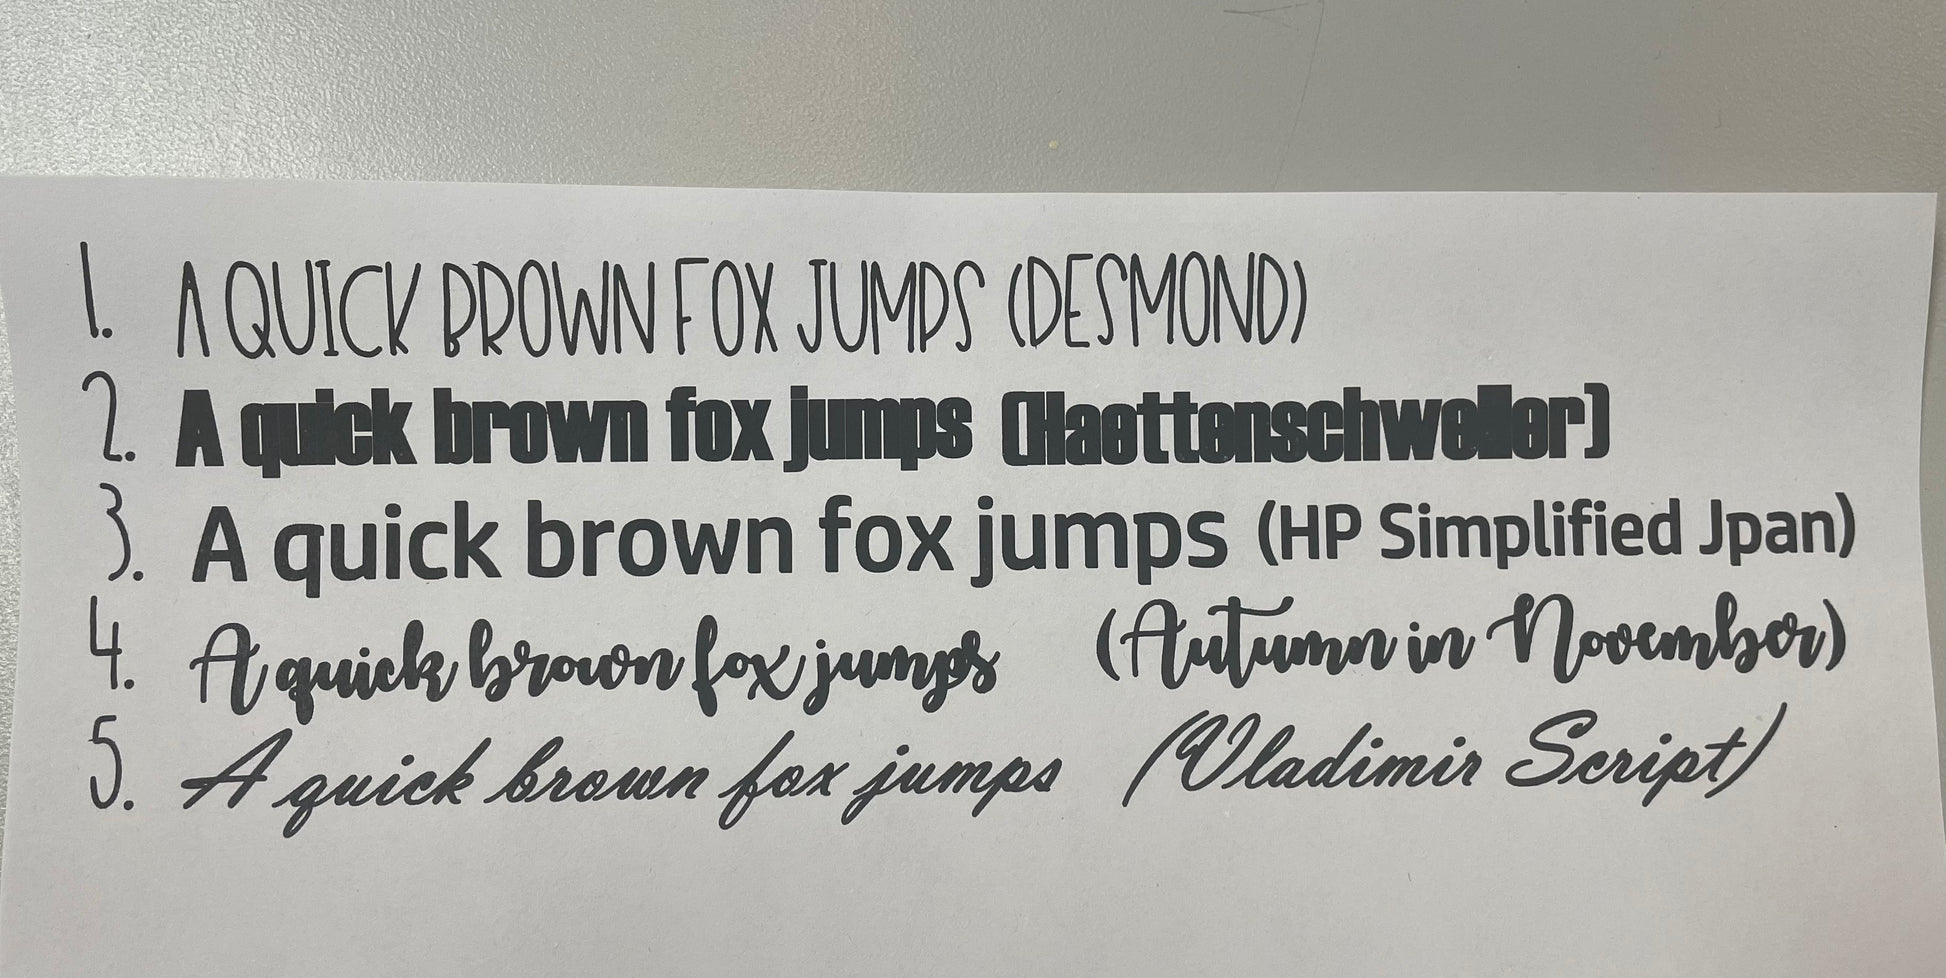 1. A QUICK BROWN FOX JUMPS (DESMOND)
2. A quick brown fox jumps (Haettenschweiler)
3. A quick brown fox jumps (HP Simplified Jpan)
4. A quick brown fox jumps (Autumn in November)
5. A quick brown fox jumps (Vladimir Script)